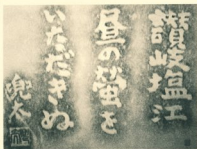 讃岐塩江
昼の蛍を
いただきぬ
楽太